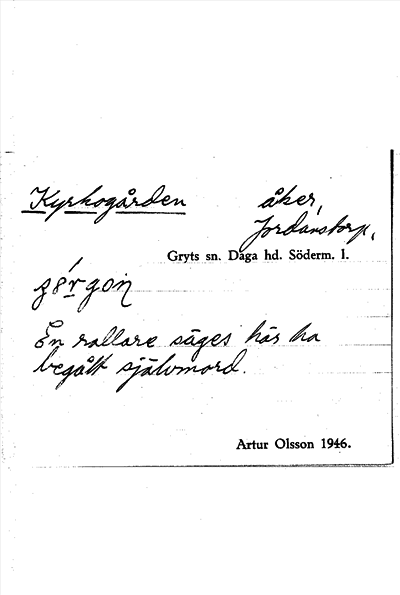 Kyrkogården åker,
Jordanstorp,
Gryts sn. Daga hd. Söderm. l.
En rallare säges här ha
begått självmord.
Artur Olsson 1946.